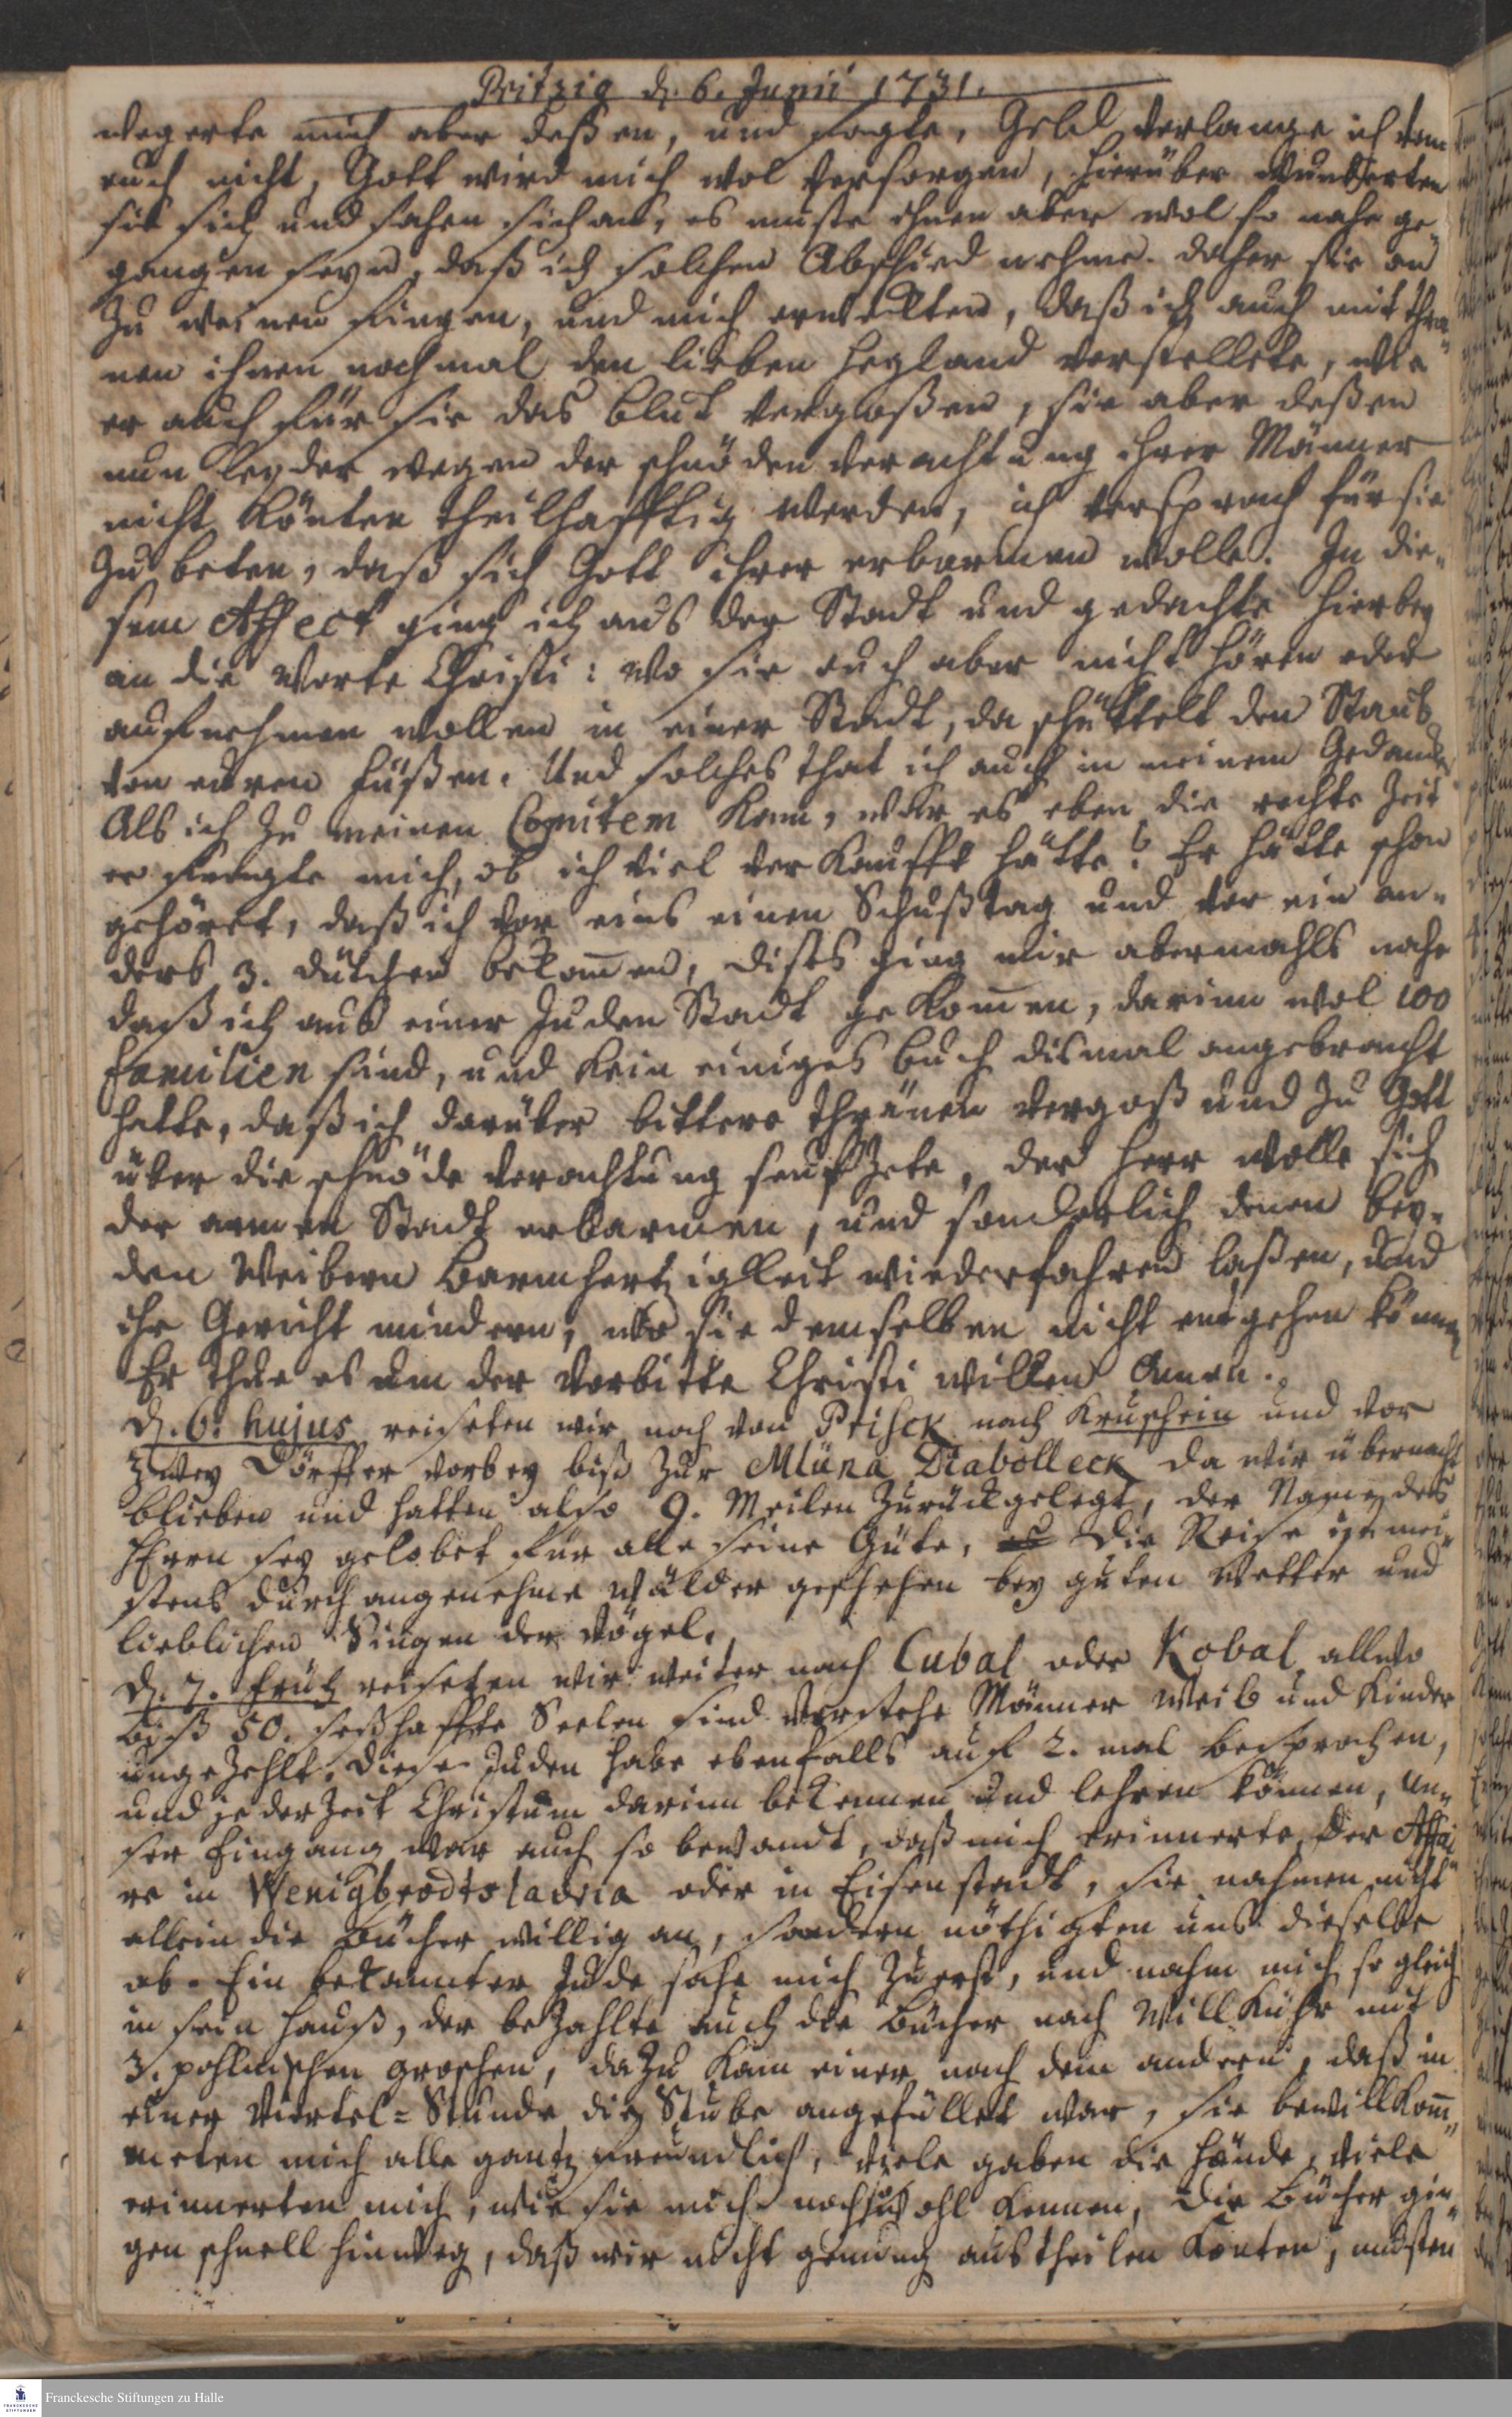 Pritzig d. 6. Junii 1731.
wegerte mich aber deßen, und sagte, Geld verlange ich von
euch nicht, Gott wird mich wol versorgen, hierüber wunderten
sie sich und sahen sich an, es muste ihnen aber wol so nahe ge-
gangen seyn, daß ich solchen Abschied nehme. daher sie an
zu weinen fingen, und mich erweckten, daß ich auch mit thrä-
nen ihnen nochmal den lieben Heyland vorstellete, wie
er auch für sie das blut vergoßen, sie aber deßen
nun leyder wegen der schnöden verachtung ihrer Männer
nicht könten theilhafftig werden, ich versprach für sie
zu beten, daß sich Gott ihrer erbarmen wolle. In die-
sem Affect ging ich aus der Stadt und gedachte hierbey
an die Worte Christi: wo sie euch aber nicht hören oder
aufnehmen wollen in einer Stadt, da schüttelt den Staub
von euren füßen. Und solches that ich auch in meinem Gedancken
Als ich zu meinen Comitem kam, war es eben die rechte Zeit
er fragte mich, ob ich viel verkaufft hätte? Er hätte schon
gehöret, daß ich vor eins einen Schußtag und vor ein an-
ders 3. dütchen bekommen, dises ging mir abermahls nahe
daß ich aus einer Juden Stadt gekommen, darinn wol 100
familien sind, und kein einiges buch dismal angebracht
hatte, daß ich darüber bittere thränen vergoß und zu Gott
über die schnöde verachtung seufzete, der Herr wolle sich
der armen Stadt erbarmen, und sonderlich denen bey-
den Weibern barmhertzigkeit wiederfahren laßen, und
ihr Gericht mindern, wo sie demselben nicht entgehen können
Er thue es um der Vorbitte Christi willen Amen.
d. 6. hujus reiseten wir noch von Prihck nach Kruschein und vor
zwey Dörffer vorbey biß zur Mlüna Diabolleck da wir übernacht
blieben und hatten also 9. Meilen zurückgelegt, der Name des
HErrn sey gelobet für alle seine Güte, die Reise ist mei-
stens durch angenehme Wälder geschehen bey guten Wetter und
lieblichen Singen der Vögel.
d. 7. früh reiseten wir weiter nach Cubal oder Kobal, allwo
biß 50. seßhaffte Seelen sind verstehe Männer Weib und Kinder
ungezehlt. Diese Juden habe ebenfalls auf 2. mal besprochen,
und jederzeit Christum darinn bekennen und lehren können, un-
ser Eingang war auch so bewandt, daß mich erinnerte der Affai-
re in Wenigbrodtsladria oder in Eisenstadt, sie nahmen nicht
allein die Bücher willig an, sondern nöthigten uns dieselbe
ab. Ein bekannter Jude sahe mich zuerst, und nahm mich so gleich
in sein Hauß, der bezahlte auch die Bücher nach Willkühr mit
3. pohlnischen groschen, dazu kam einer nach dem andern, daß in
einer Viertel=Stunde die Stube angefüllet war, sie bewillkomm-
meten mich alle gantz freundlich, viele gaben die Hände, viele
erinnerten mich, wie sie mich noch so wohl kennen, die Bücher gin-
gen schnell hinweg, daß wir nicht genung austheilen konten, musten
Franckesche Stiftungen zu Halle